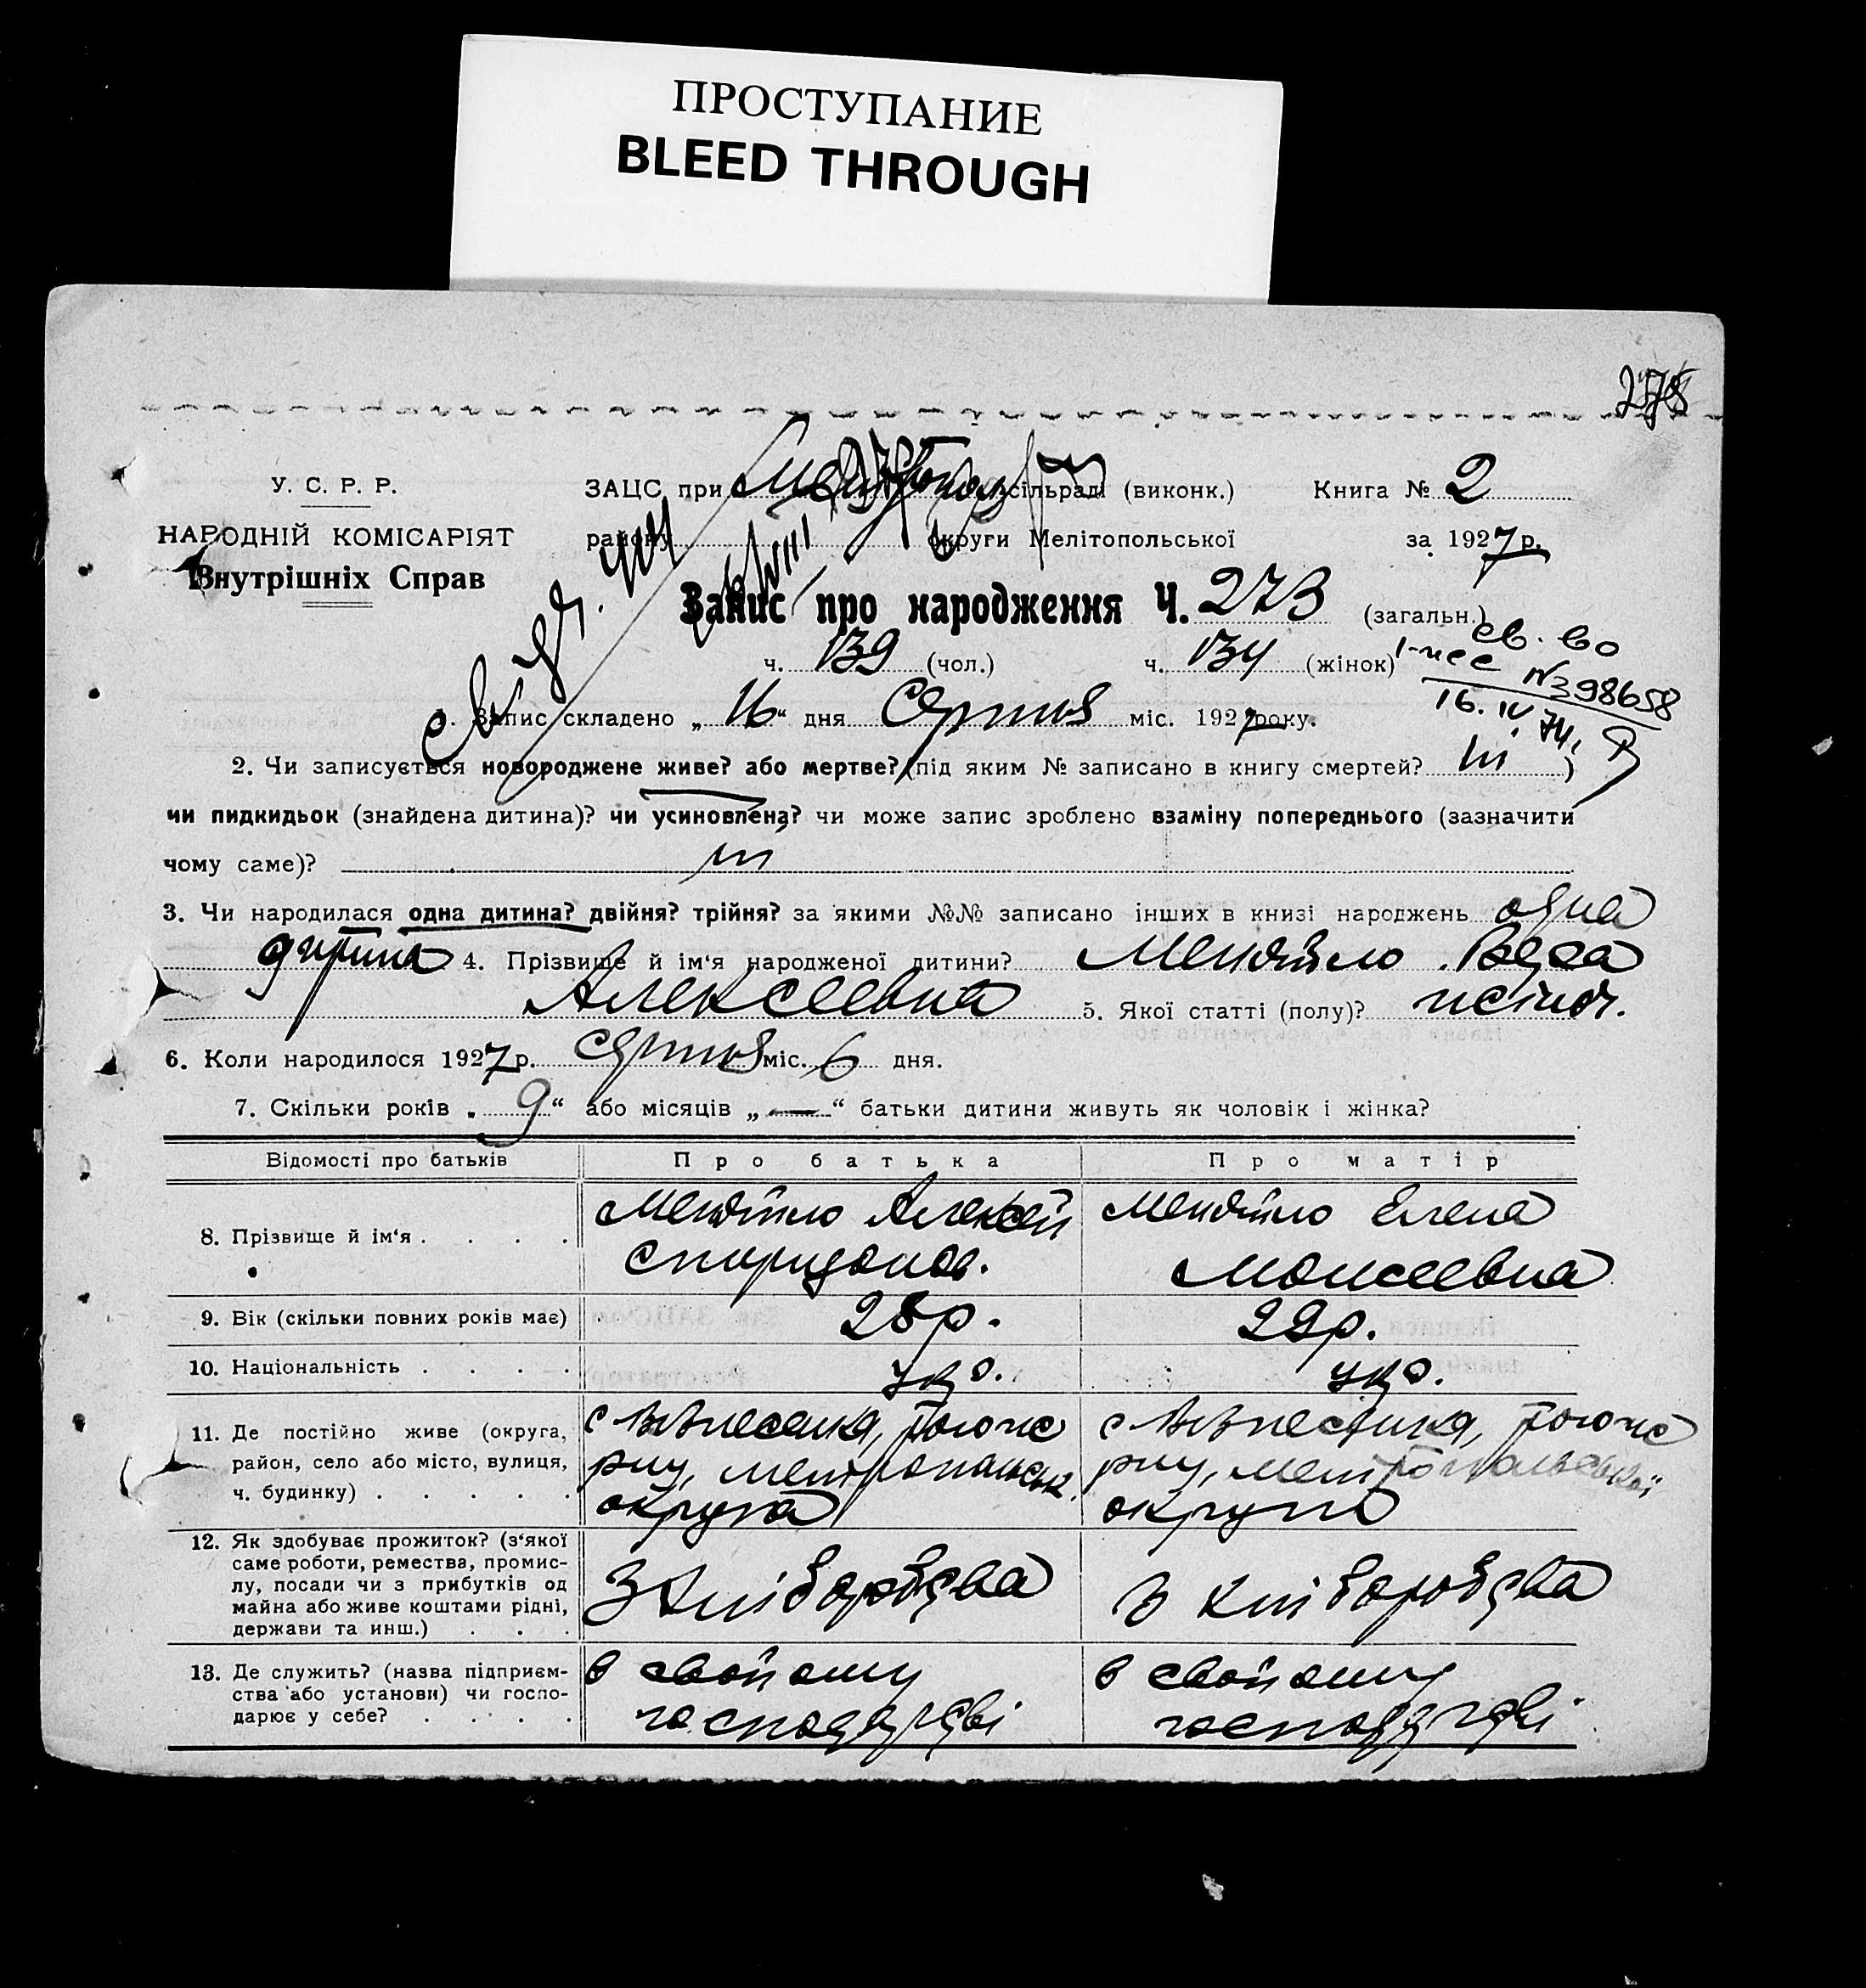 ПРОСТУПАНИЕ
BLEED THROUGH
275
У. С. Р. Р.
НАРОДНІЙ КОМІСАРІЯТ
Внутрішніх Справ
ЗАЦС при сільраді (виконк.)
району округи Мелітопольської
Книга № 2
за 1927 р.
Запис про народження Ч. 273 (загальн.)
ч. 139 (чол.) ч. 134 (жінок)
св-во
№398658
16. IV 74.
1. Запис складено „16“ дня Серпня міс. 1927 року.
2. Чи записується новороджене живе? або мертве? (під яким № записано в книгу смертей? ні )
чи пидкидьок (знайдена дитина)? чи усиновлена? чи може запис зроблено взаміну попереднього (зазначити
чому саме)? ні
3. Чи народилася одна дитина? двійня? трійня? за якими №№ записано інших в книзі народжень одна
дитина 4. Прізвище й ім‘я народженої дитини? Мендтло Вера
Алексеевна 5. Якої статті (полу)? жіноч.
6. Коли народилося 1927 р. серпня міс. 6 дня.
7. Скільки років „9“ або місяців „—“ батьки дитини живуть як чоловік і жінка?
Відомості про батьків Про батька Про матір
8. Прізвище й ім‘я . . . . Алексей Спиридонов. Елена Моисеевна
9. Вік (скільки повних років має) 28 р. 29 р.
10. Національність . . . . укр. укр.
11. Де постійно живе (округа,
район, село або місто, вулиця,
ч. будинку) . . . . .
с Вознесенка, рну, Мелітопольськ. округа
с Вознесенка, рну, Мелітопольської округи
12. Як здобуває прожиток? (з‘якої
саме роботи, ремества, промис-
лу, посади чи з прибутків од
майна або живе коштами рідні,
держави та инш.) . . .
З хліборобства
З хліборобства
13. Де служить? (назва підприєм-
ства або установи) чи госпо-
дарює у себе? . . . .
в свойому господарстві
в свойому господарстві